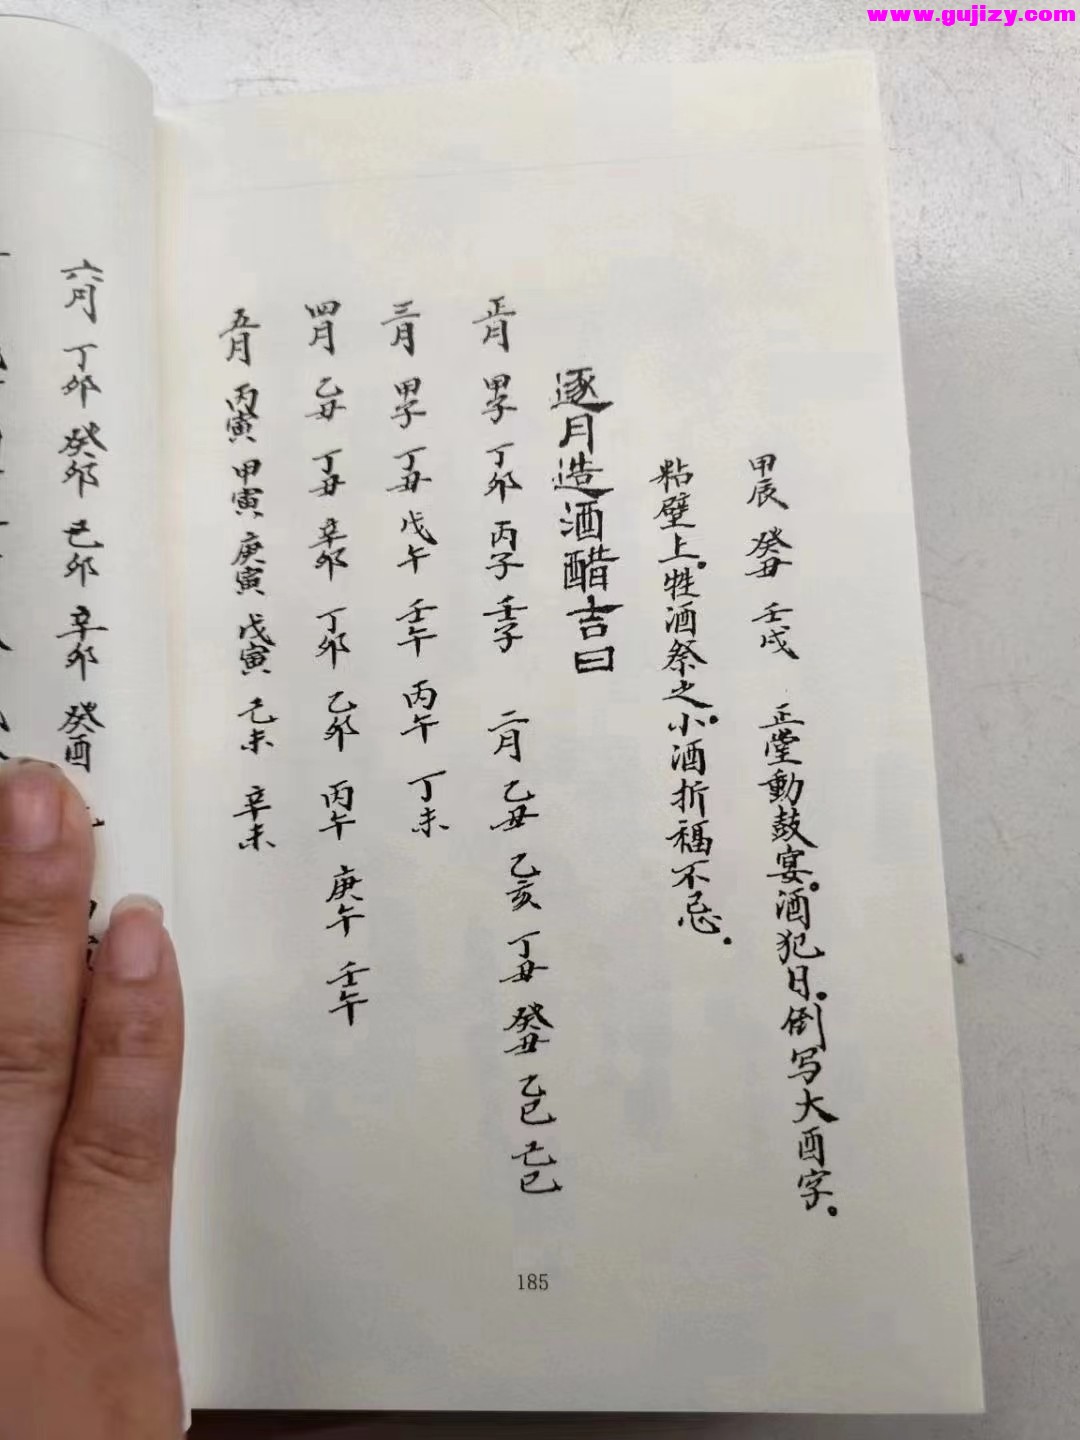 www.gujizy.com
甲辰 癸丑 壬戌 正堂動鼓宴。酒犯日。倒写大酉字。
粘壁上。牲酒祭之。小酒折福不忌。
逐月造酒醋吉日
正月 甲子 丁卯 丙子 壬子 二月 乙丑 乙亥 丁丑 癸丑 乙巳 己巳
三月 甲子 丁丑 戊午 壬午 丙午 丁未
四月 乙丑 丁丑 辛卯 丁卯 乙卯 丙午 庚午 壬午
五月 丙寅 甲寅 庚寅 戊寅 己未 辛未
185
六月 丁卯 癸卯 己卯 辛卯 癸酉